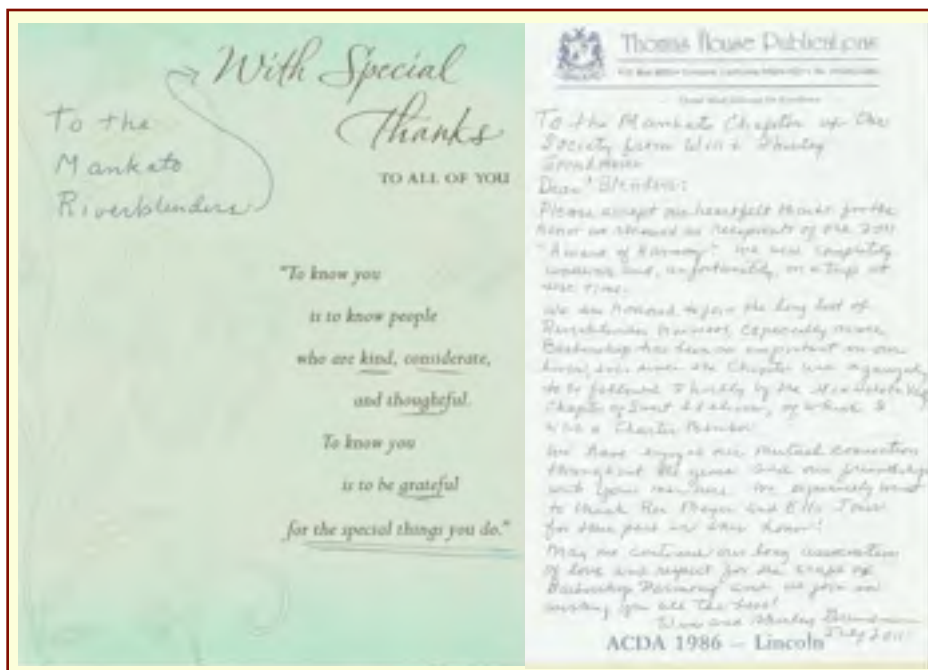 With Special
Thanks
TO ALL OF YOU
To the
Mankato
Riverblenders
"To know you
is to know people
who are kind, considerate,
and thoughtful.
To know you
is to be grateful
for the special things you do."
Thomas House Publications
To the Mankato Chapter of the
Society from Win & Shirley
Dear "Blenders:
Please accept our heartfelt thanks for the
honor we received as recipients of the 2011
"Award of Harmony". We were completely
and, unfortunately, on a trip at
the time.
We are honored to join the long list of
Riverblender honorees, especially since
Barbershop has been so important in our
lives, ever since the Chapter was organized
to be followed shortly by the
Chapter of Sweet Adelines, of which I
was a Charter Member.
We have enjoyed our mutual connection
throughout the years and our friendship
with your members. We especially want
to thank and
for their part in this honor!
May we continue our long association
of love and respect for the
Barbershop Harmony and we join in
wishing you all the best!
Win and Shirley
July 2011
ACDA 1986 – Lincoln